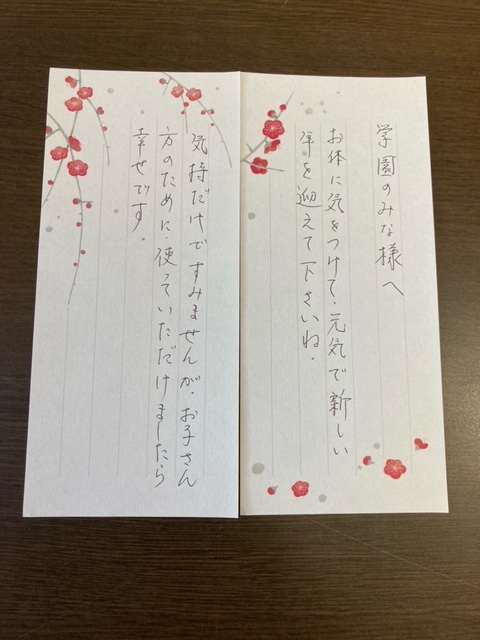 学園のみな様へ
お体に気をつけて、元気で新しい
年を迎えて下さいね。
気持だけですみませんが、お子さん
方のために、使っていただけましたら
幸せです。